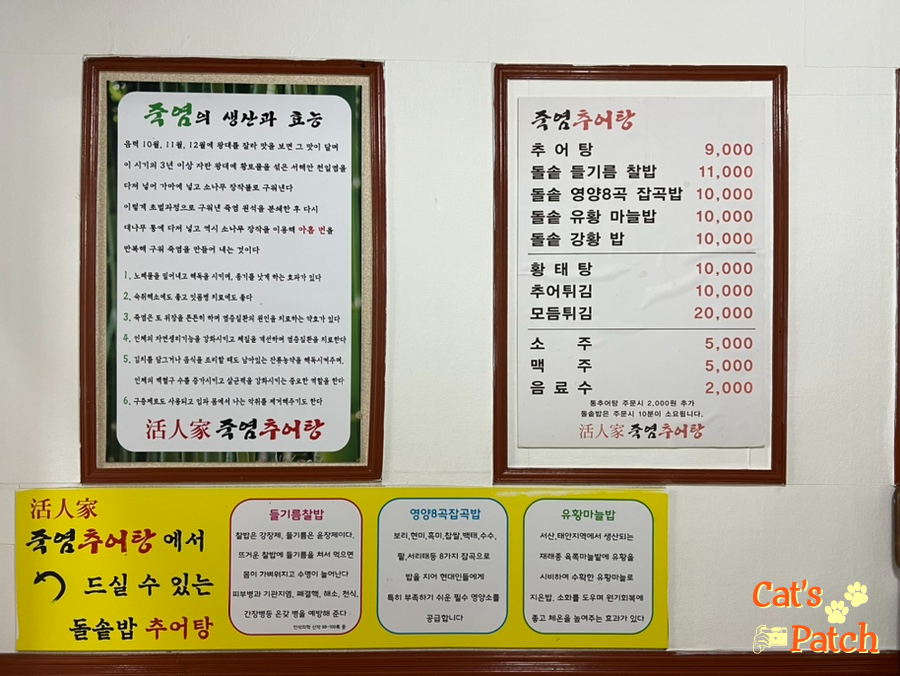 죽염의 생산과 효능
음력 10월, 11월, 12월에 왕대를 잘라 맛을 보면 그 맛이 달며
이 시기의 3년 이상 자란 왕대에 황토물을 섞은 서해안 천일염을
다져 넣어 가마에 넣고 소나무 장작불로 구워낸다
이렇게 초벌과정으로 구워낸 죽염 원석을 분쇄한 후 다시
대나무 통에 다져 넣고 역시 소나무 장작을 이용해 아홉 번을
반복해 구워 죽염을 만들어 내는 것이다
1. 노폐물을 밀어내고 해독을 시키며, 종기를 낫게 하는 효과가 있다
2. 숙취해소에도 좋고 잇몸병 치료에도 좋다
3. 죽염은 또 위장을 튼튼히 하며 염증질환의 원인을 치료하는 약효가 있다
4. 인체의 자연생리기능을 강화시키고 체질을 개선하며 염증질환을 치료한다
5. 김치를 담그거나 음식을 조리할 때도 남아있는 잔류농약을 해독시켜주며,
인체의 백혈구 수를 증가시키고 살균력을 강화시키는 중요한 역할을 한다
6. 구충제로도 사용되고 입과 몸에서 나는 악취를 제거해주기도 한다
活人家 죽염추어탕
죽염추어탕
추어탕 9,000
돌솥 들기름 찰밥 11,000
돌솥 영양8곡 잡곡밥 10,000
돌솥 유황 마늘밥 10,000
돌솥 강황 밥 10,000
황태탕 10,000
추어튀김 10,000
모듬튀김 20,000
소 주 5,000
맥 주 5,000
음료수 2,000
통추어탕 주문시 2,000원 추가
돌솥밥은 주문시 10분이 소요됩니다.
活人家 죽염추어탕
活人家
죽염추어탕에서
드실 수 있는
돌솥밥 추어탕
들기름찰밥
찰밥은 강장제, 들기름은 윤장제이다.
뜨거운 찰밥에 들기름을 쳐서 먹으면
몸이 가벼워지고 수명이 늘어난다
피부병과 기관지염, 폐결핵, 해소, 천식,
간장병등 온갖 병을 예방해 준다
영양8곡잡곡밥
보리,현미,흑미,찹쌀,백태,수수,
팥,서리태등 8가지 잡곡으로
밥을 지어 현대인들에게
특히 부족하기 쉬운 필수 영양소를
공급합니다
유황마늘밥
서산,태안지역에서 생산되는
재래종 육쪽마늘밭에 유황을
시비하여 수확한 유황마늘로
지은밥, 소화를 도우며 원기회복에
좋고 체온을 높여주는 효과가 있다
Cat's
Patch